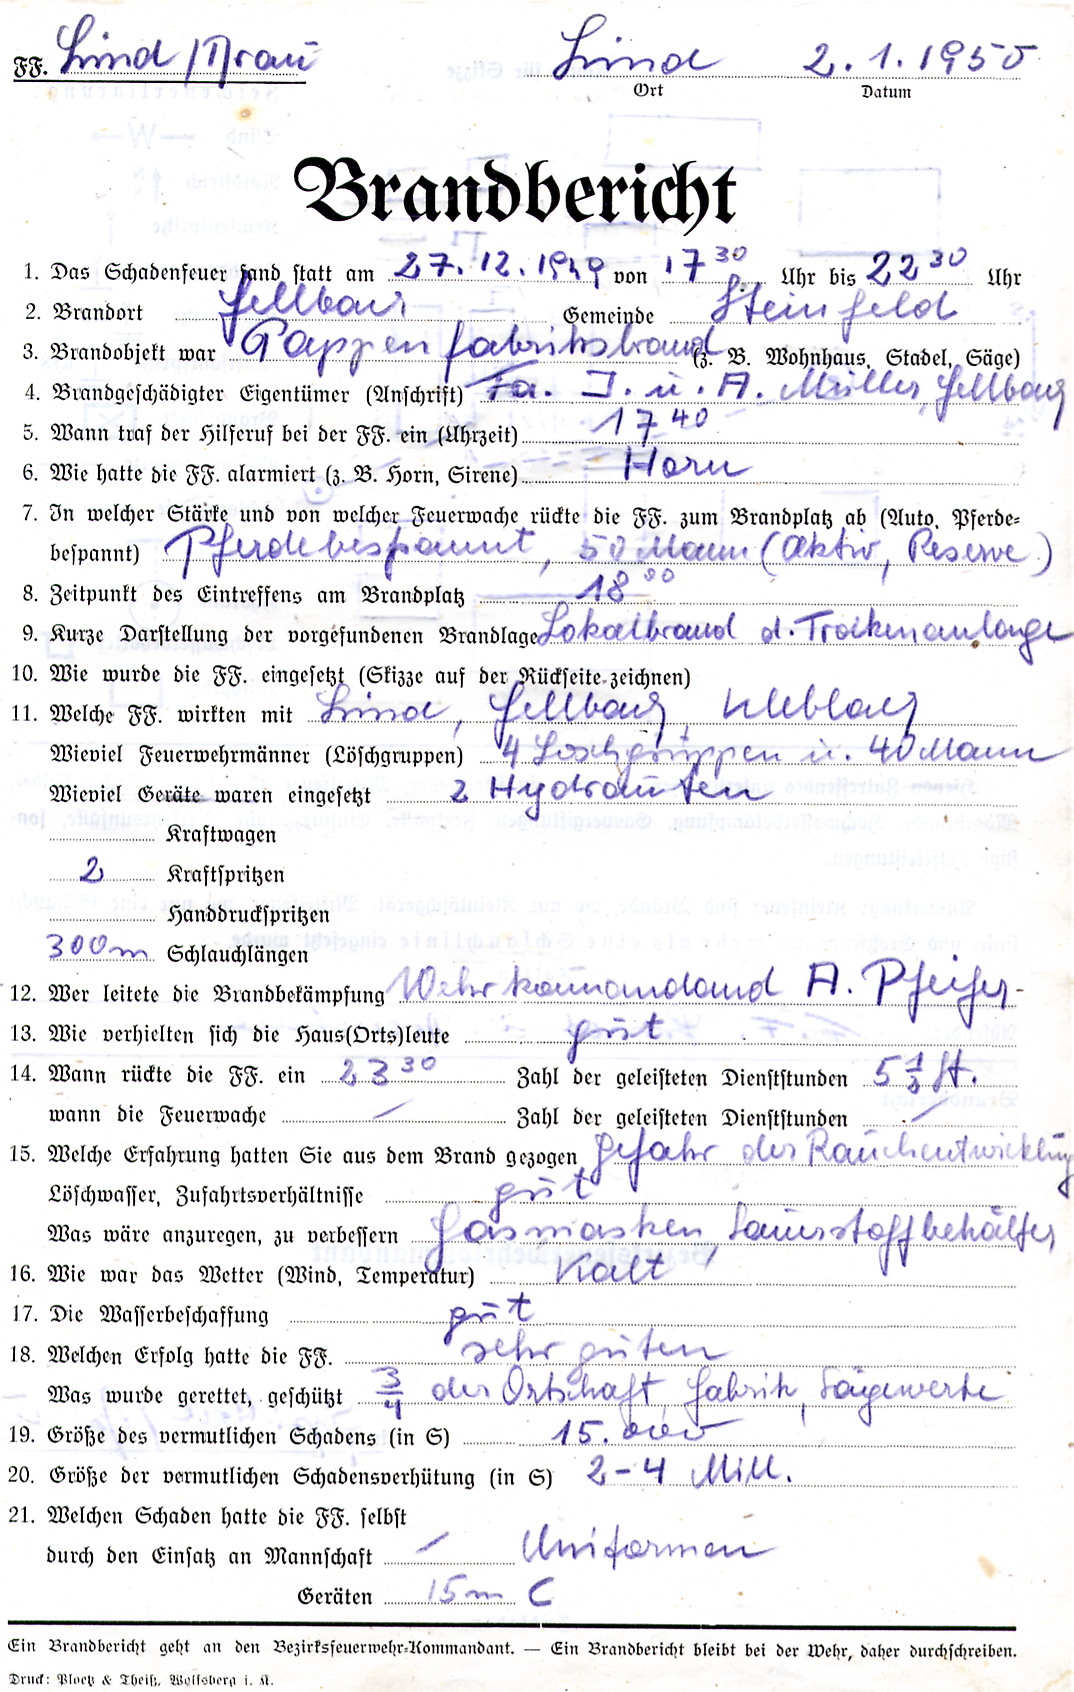 FF. Lind/Drau Lind 2.1.1950
Ort Datum
Brandbericht
1. Das Schadenfeuer fand statt am 27.12.1949 von 17 30 Uhr bis 22 30 Uhr
2. Brandort Fellbach Gemeinde Steinfeld
3. Brandobjekt war Pappenfabriksbrand (z. B. Wohnhaus, Stadel, Säge)
4. Brandgeschädigter Eigentümer (Anschrift) Fa. J. u. A. Müller, Fellbach
5. Wann traf der Hilferuf bei der FF. ein (Uhrzeit) 17 40
6. Wie hatte die FF. alarmiert (z. B. Horn, Sirene) Horn
7. In welcher Stärke und von welcher Feuerwache rückte die FF. zum Brandplatz ab (Auto, Pferde-
bespannt) Pferdebespannt, 50 Mann (Aktiv, Reserve)
8. Zeitpunkt des Eintreffens am Brandplatz 18 00
9. Kurze Darstellung der vorgefundenen Brandlage Lokalbrand d. Trockenanlage
10. Wie wurde die FF. eingesetzt (Skizze auf der Rückseite zeichnen)
11. Welche FF. wirkten mit Lind, Fellbach, Kleblach
Wieviel Feuerwehrmänner (Löschgruppen) 4 Löschgruppen u. 40 Mann
Wieviel Geräte waren eingesetzt 2 Hydranten
Kraftwagen
2 Kraftspritzen
Handdruckspritzen
300m Schlauchlängen
12. Wer leitete die Brandbekämpfung Wehrkommandand A. Pfeifer
13. Wie verhielten sich die Haus(Orts)leute gut
14. Wann rückte die FF. ein 23 30 Zahl der geleisteten Dienststunden 5 1/2 St.
wann die Feuerwache / Zahl der geleisteten Dienststunden /
15. Welche Erfahrung hatten Sie aus dem Brand gezogen Gefahr der Rauchentwicklung
Löschwasser, Zufahrtsverhältnisse gut
Was wäre anzuregen, zu verbessern Gasmasken, Sauerstoffbehälter
16. Wie war das Wetter (Wind, Temperatur) Kalt
17. Die Wasserbeschaffung gut
18. Welchen Erfolg hatte die FF. sehr guten
Was wurde gerettet, geschützt 3/4 der Ortschaft, Fabrik, Sägewerke
19. Größe des vermutlichen Schadens (in S) 15.000
20. Größe der vermutlichen Schadensverhütung (in S) 2-4 Mill.
21. Welchen Schaden hatte die FF. selbst
durch den Einsatz an Mannschaft / Uniformen
Geräten 15m C
Ein Brandbericht geht an den Bezirksfeuerwehr-Kommandant. — Ein Brandbericht bleibt bei der Wehr, daher durchschreiben.
Druck: Ploetz & Theiß, Wolfsberg i. K.